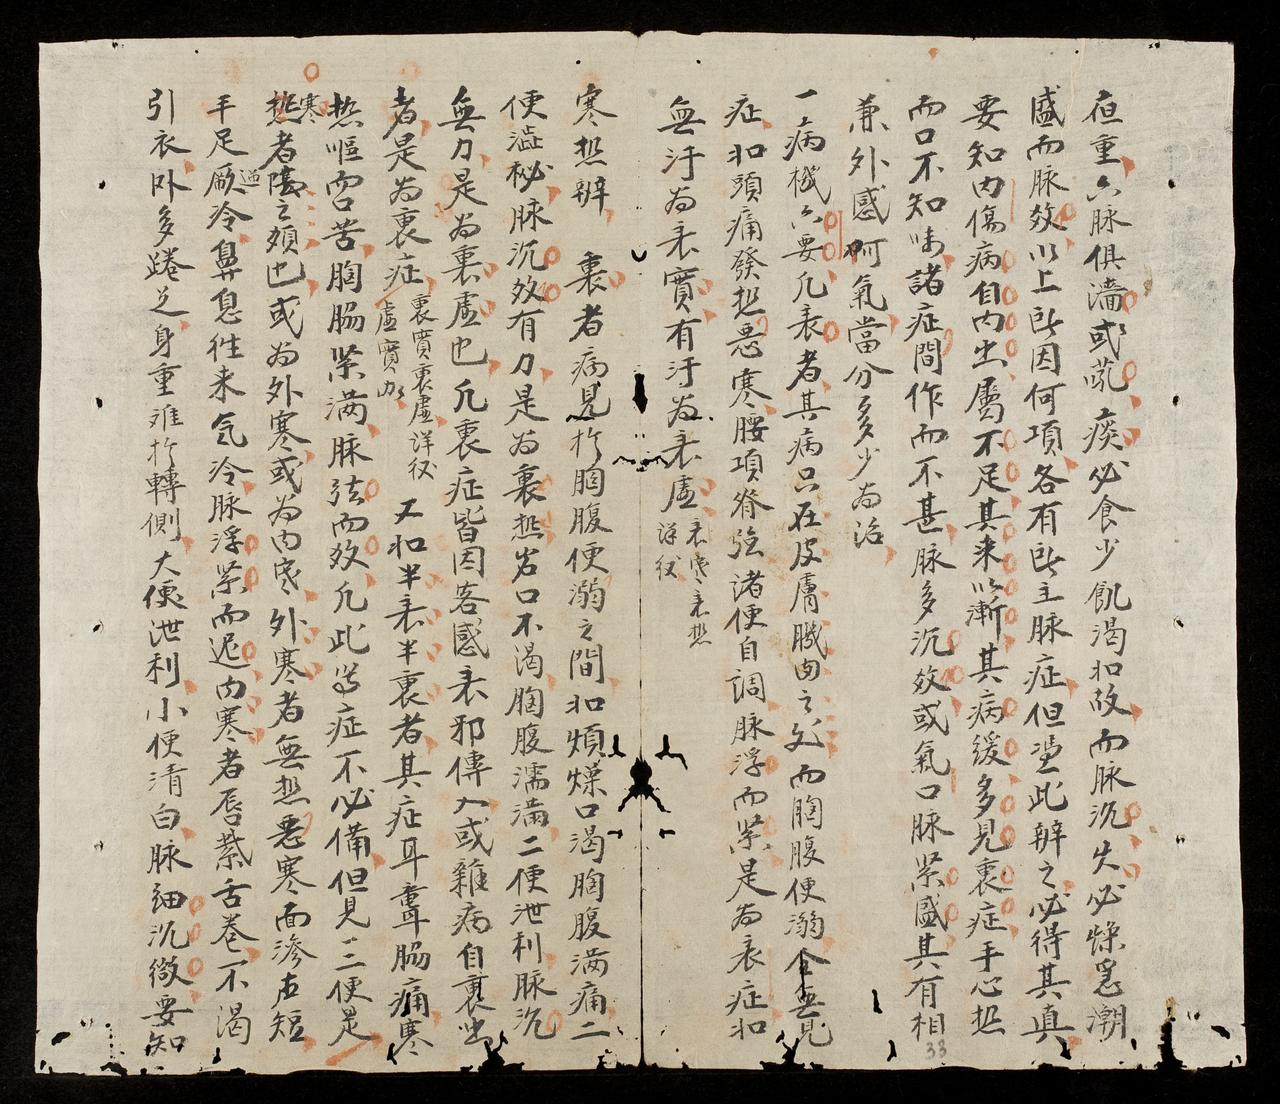 夜重六脉俱濡或吼痰必食少飢渴如故而脉沉失必燥悪潮
盛而脉数以上此因何項各有此主脉症但憑此辨之必得其真
要知内傷病自内出屬不足其来以漸其病緩多見裏症手心热
而口不知味諸症間作而不甚脉多沉数或氣口脉緊盛其有相
兼外感何氣當分多少為治
一病機六要凡表者其病只在皮膚腠之处而胸腹便溺全無見
症如頭痛發热惡寒腰項脊強諸便自調脉浮而緊是為表症如
無汗為表實有汗為表虛 表寒表热詳后
寒热辨 裏者病見於胸腹便溺之間如煩燥口渴胸腹满痛二
便澁秘脉沉数有力是為裏热若口不渴胸腹濡满二便泄利脉沉
無力是為裏虛也凡裏症皆因客感表邪傳入或雜病自裏出
者是為裏症 裏實裏虛詳后虛實辨 又如半表半裏者其症耳聾脇痛寒
热嘔而口苦胸脇緊满脉弦而数凡此等症不必備但見二三便是
寒热者陰之類也或為外寒或為内寒外寒者無热惡寒面惨声短
手足厥冷鼻息徃来气冷脉浮緊而迟内寒者唇紫舌卷不渴
引衣卧多踡足身重难於轉側大便泄利小便清白脉細沉微要知
33